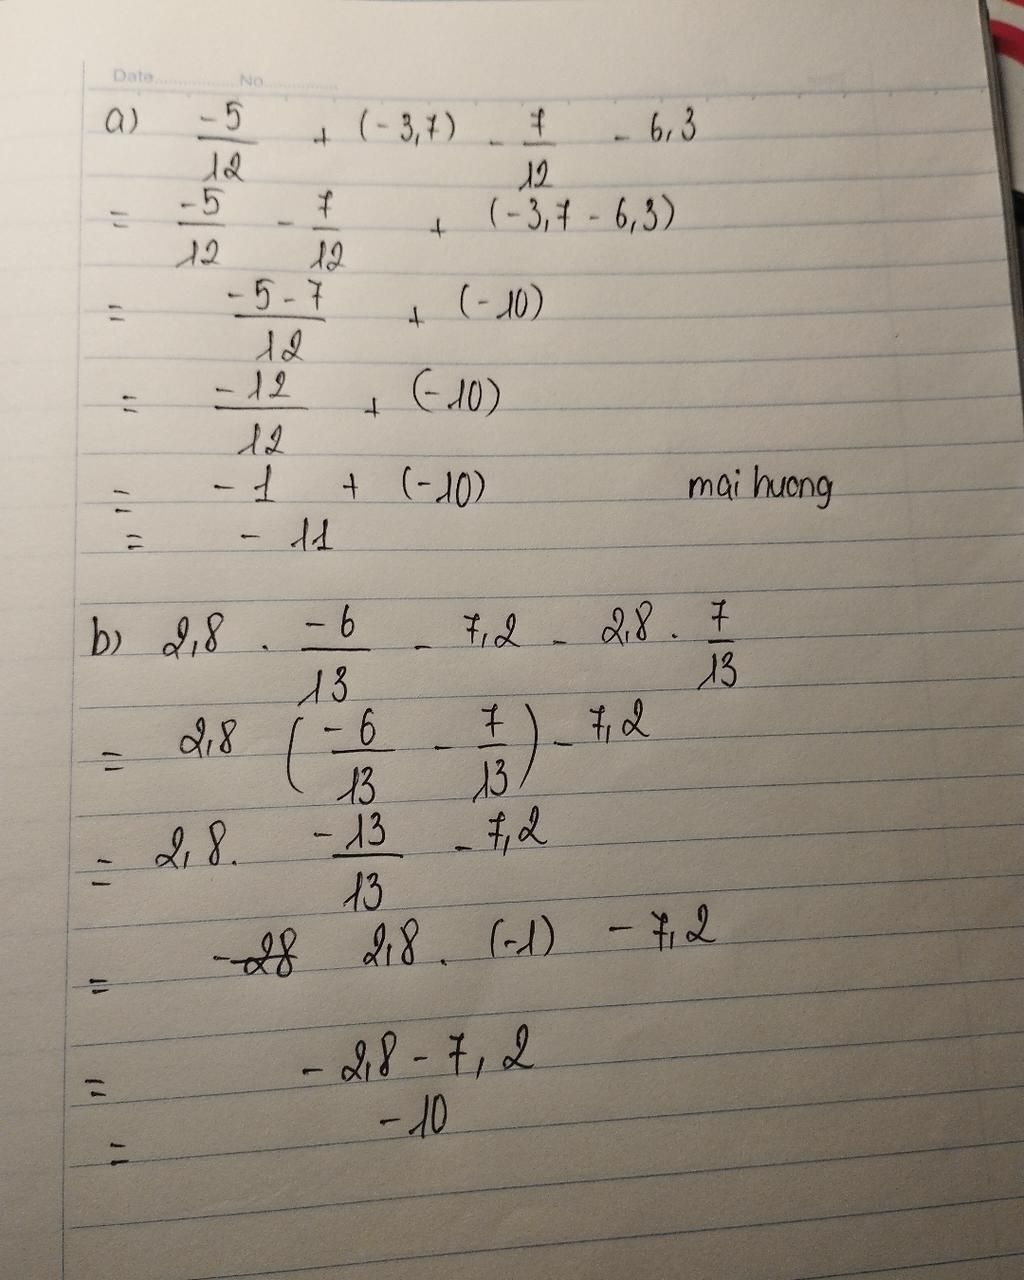 Date................. No...............
a) -5/12 + (-3,7) - 7/12 - 6,3
= -5/12 - 7/12 + (-3,7 - 6,3)
= -5-7/12 + (-10)
= -12/12 + (-10)
= -1 + (-10) mai huong
= -11
b) 2,8 . -6/13 - 7,2 - 2,8 . 7/13
= 2,8 (-6/13 - 7/13) - 7,2
= 2,8. -13/13 - 7,2
= -28 2,8 . (-1) - 7,2
= -2,8 - 7,2
= -10